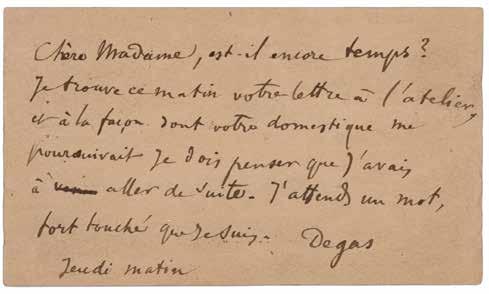 Chère Madame, est-il encore temps?
Je trouve ce matin votre lettre à l'atelier,
et à la façon dont votre domestique me
poursuivait Je dois penser que J'avais
à aller de suite. J'attends un mot,
fort touché que Je suis.
Degas
Jeudi matin